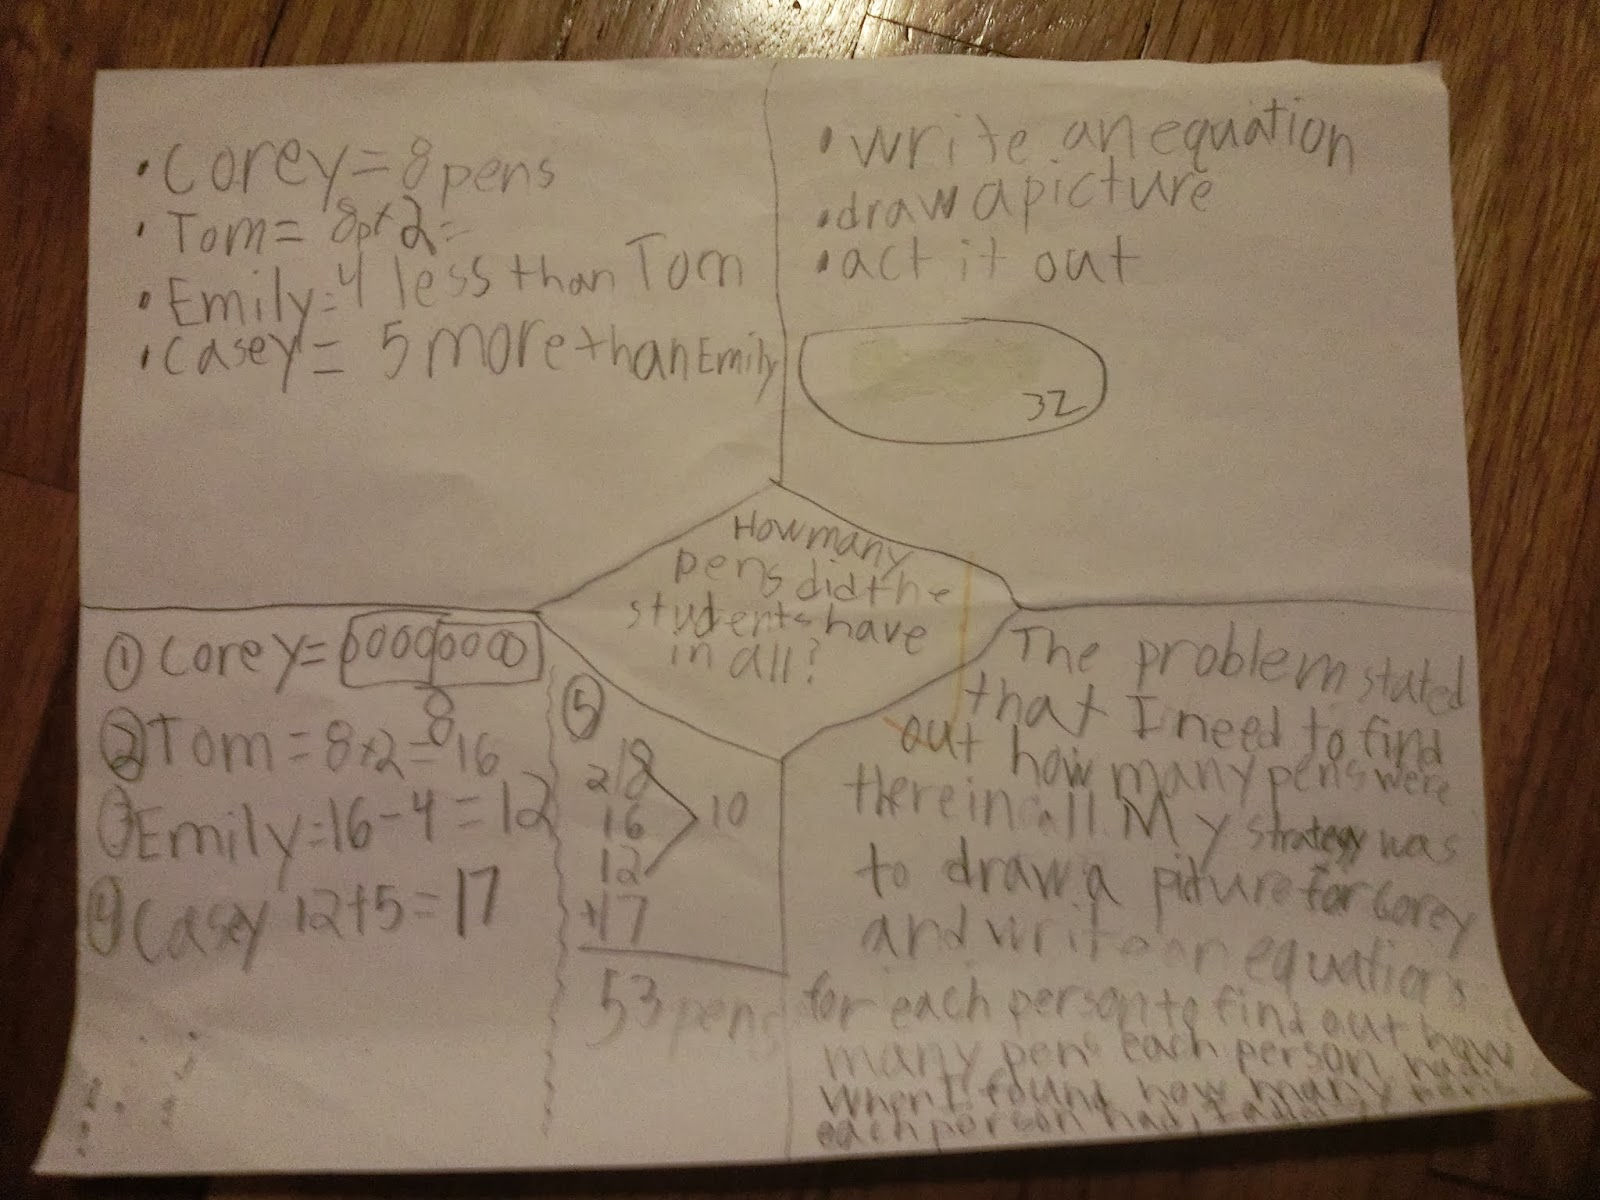 • Corey=8 pens
• Tom= 8px2=
• Emily=4 less than Tom
• Casey= 5 more than Emily
• write an equation
• draw a picture
• act it out
32
How many
pens did the
students have
in all?
① Corey=00000000
8
② Tom=8x2=16
③ Emily=16-4=12
④ Casey 12+5=17
⑤
2 8
16
12
10
+17
53 pens
The problem stated
that I need to find
out how many pens were
there in all. My strategy was
to draw a picture for Corey
and write an equations
for each person to find out how
many pens each person had.
When I found how many pens
each person had, I